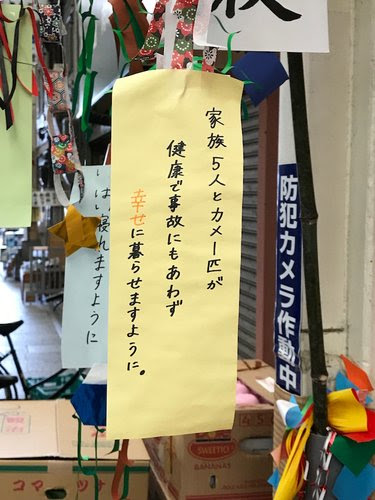 家族5人とカメ一匹が
健康で事故にもあわず
幸せに暮らせますように。
寝れますように
防犯カメラ作動中
SWEETIO
BANANAS
コマツナ